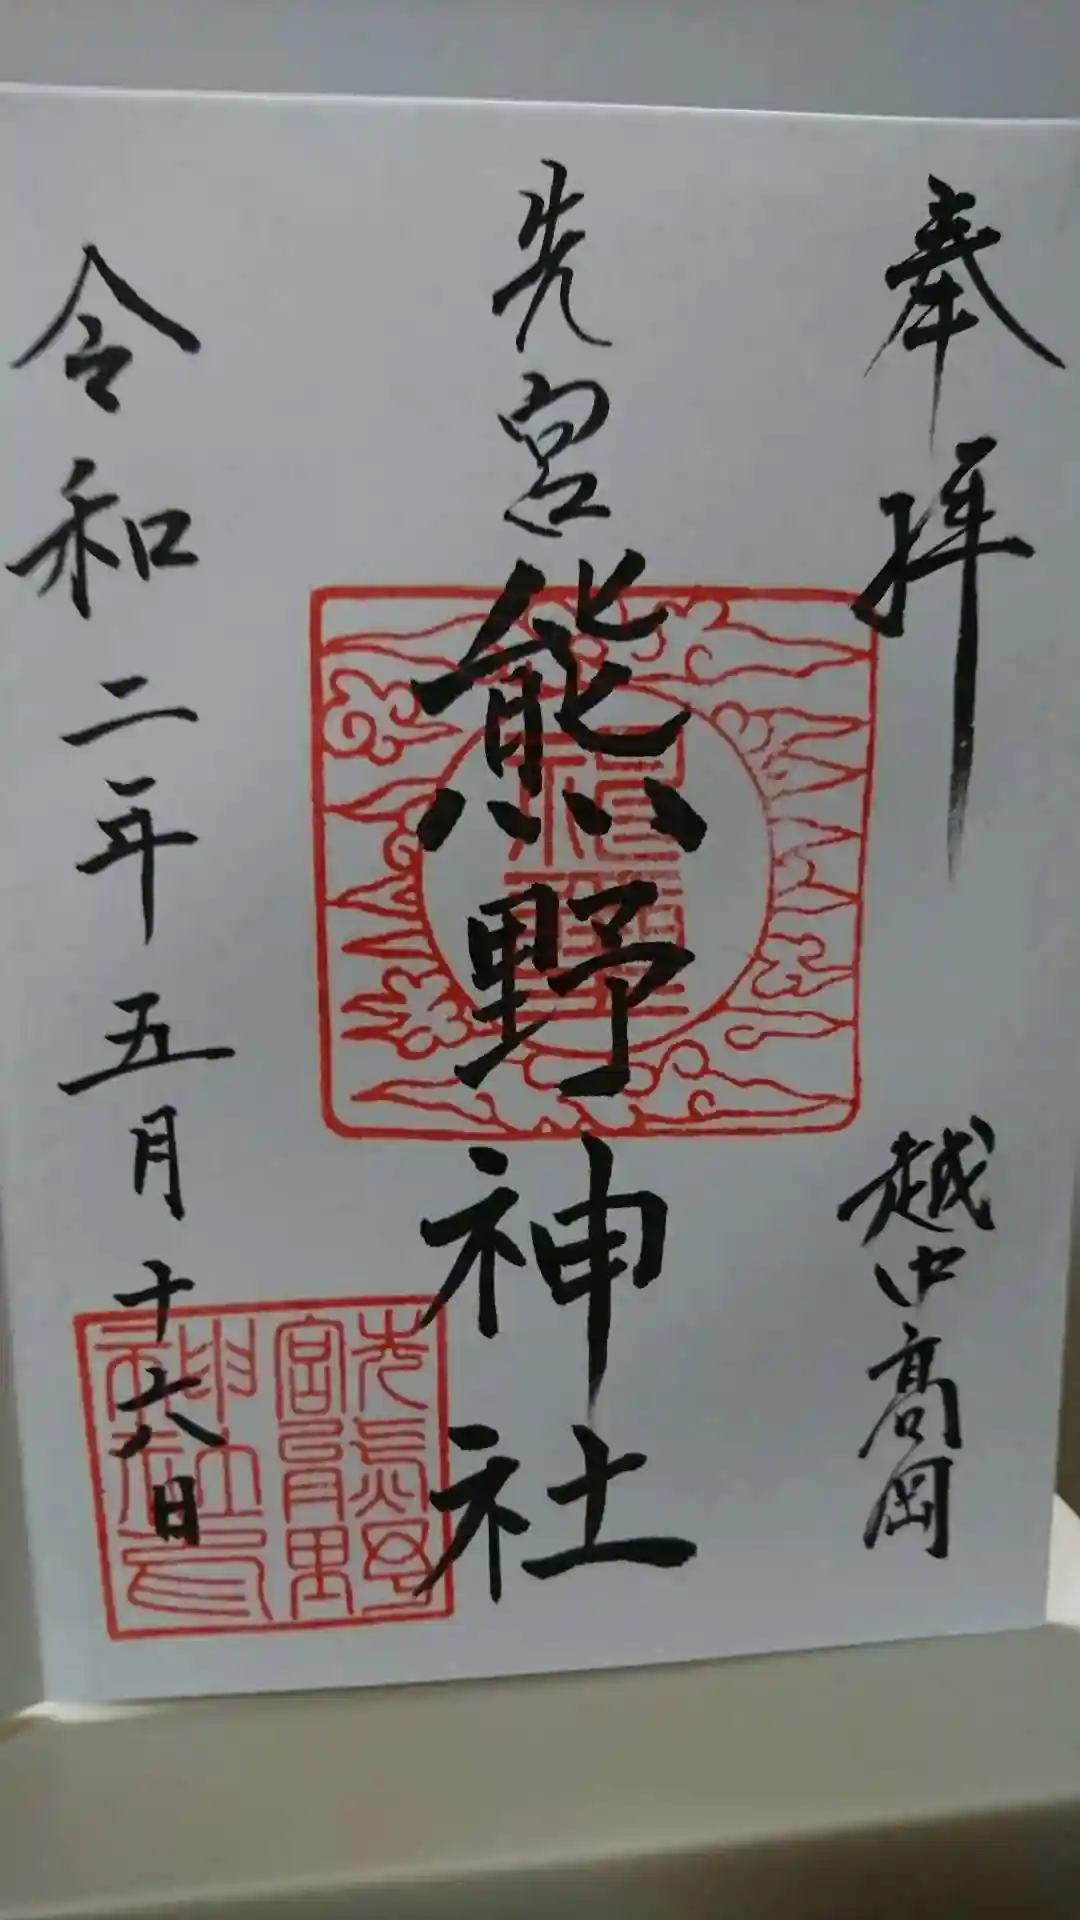 奉拝
越中高岡
先宮熊野神社
令和二年五月十六日
先宮熊野神社印